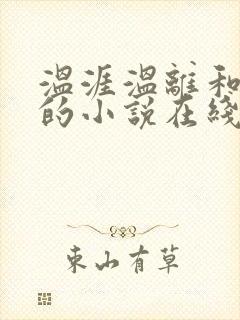 温涯温離和
的小说在綫
東山有草